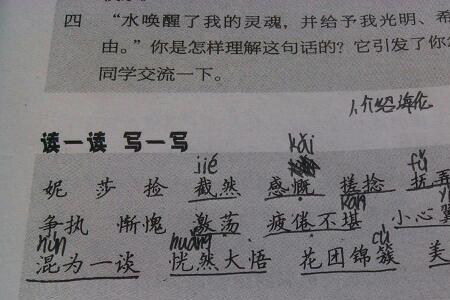 四 “水唤醒了我的灵魂，并给予我光明、希
由。”你是怎样理解这句话的？它引发了你
同学交流一下。
1.介绍海伦
读一读 写一写
jié kǎi fǔ
妮 莎 捡 截然 感慨 搓捻 抚弄
争执 惭愧 激荡 疲倦不堪 小心翼
hùn huǎng kān cù
混为一谈 恍然大悟 花团锦簇 美